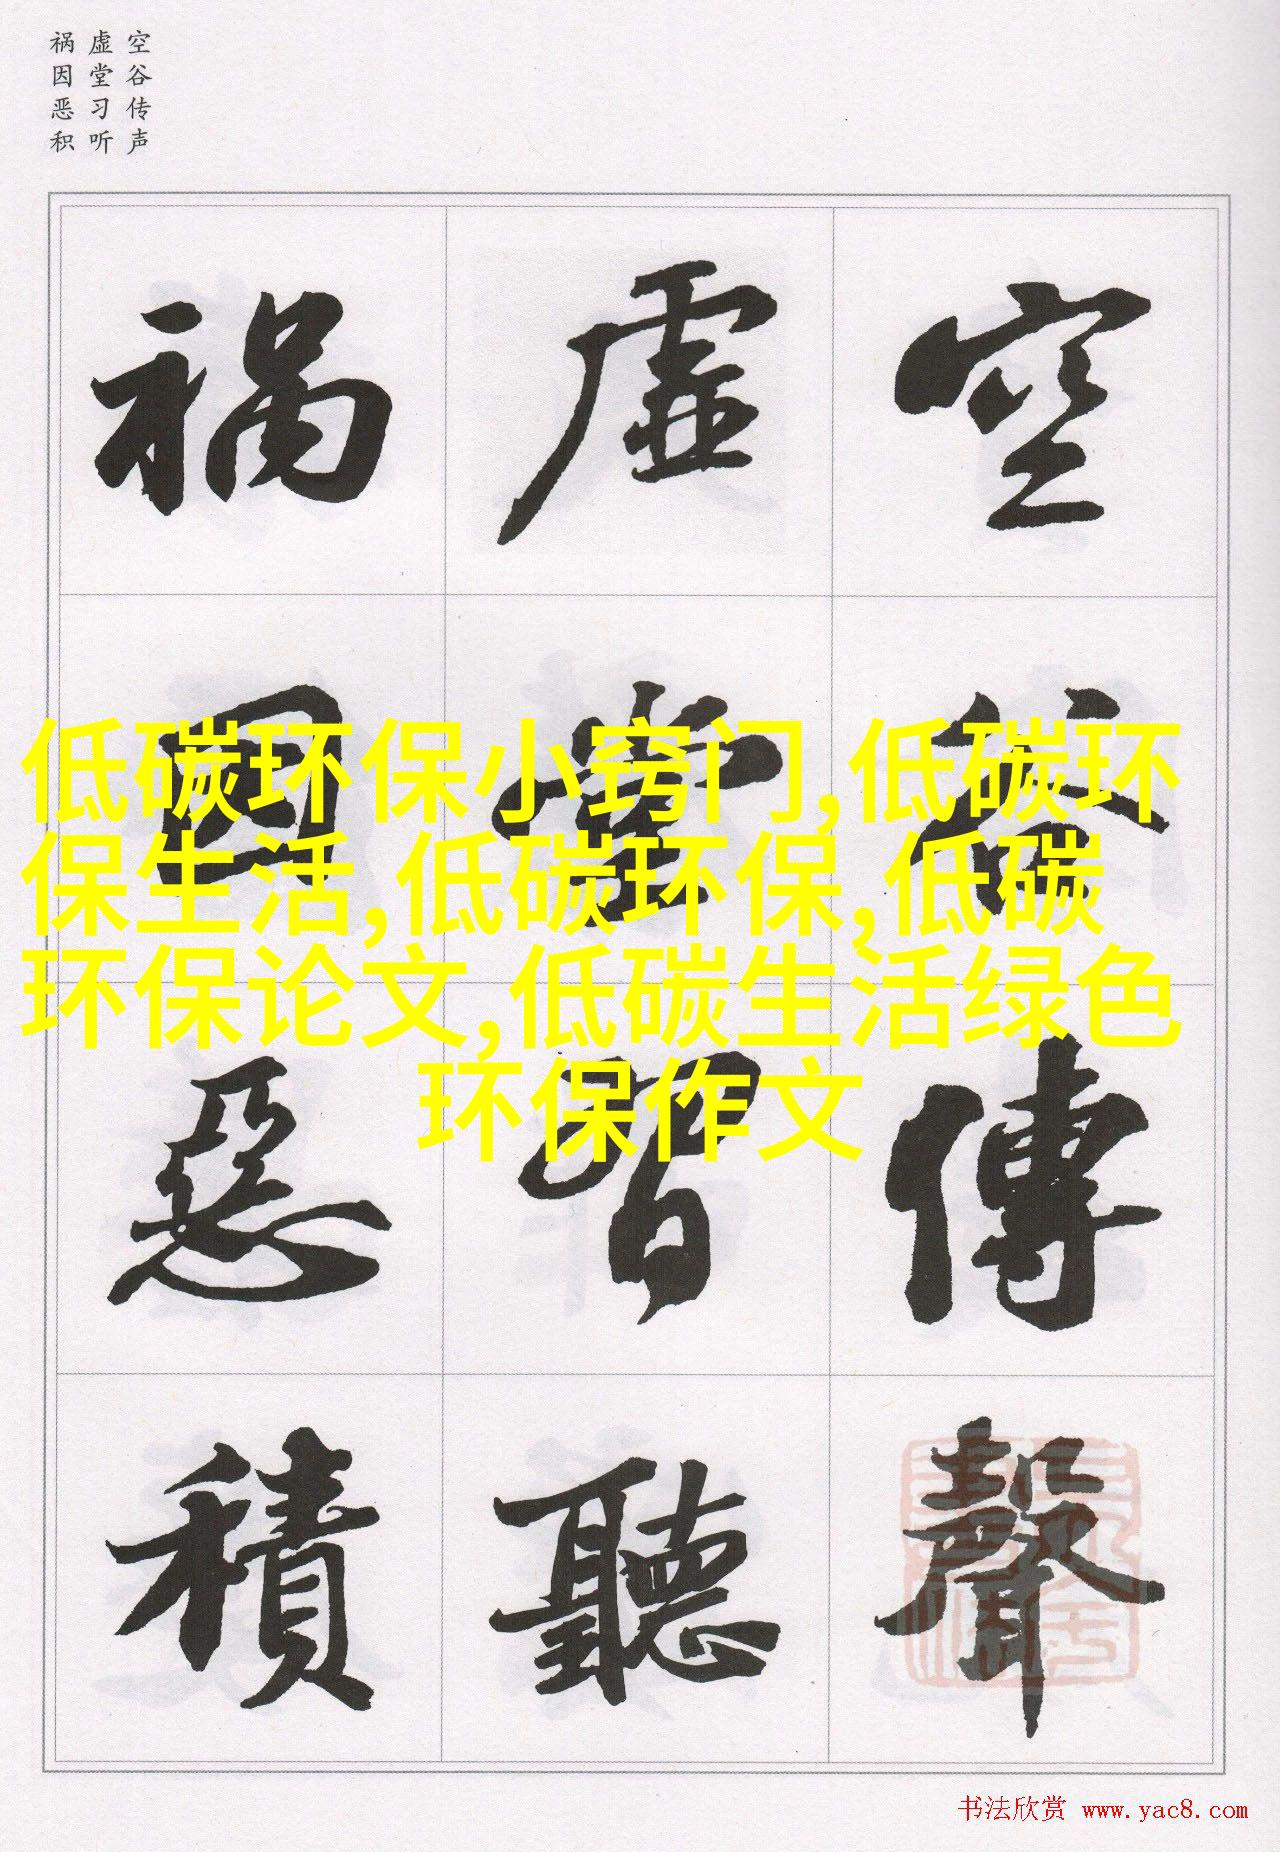 空谷传声
虚堂习听
祸因恶积
空谷傳聲
虛堂習聽
禍因惡積
低碳环保小窍门,低碳环
保生活,低碳环保,低碳
环保论文,低碳生活绿色
环保作文
书法欣赏 www.yac8.com